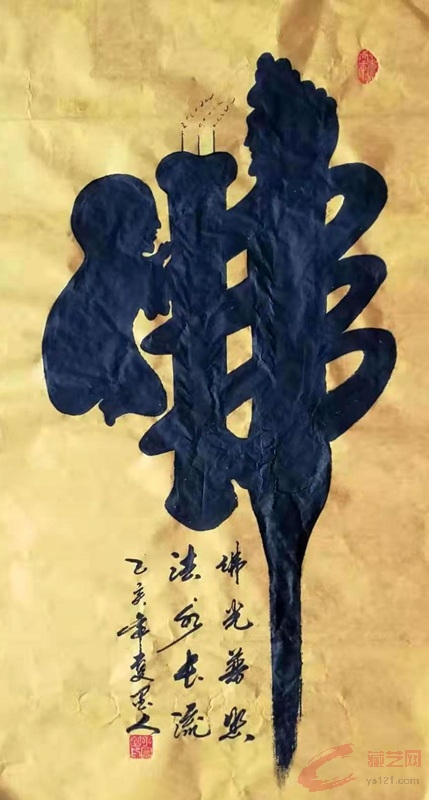 佛
佛光普照
法水长流
乙亥年夏墨人
藏艺网
ys121.com